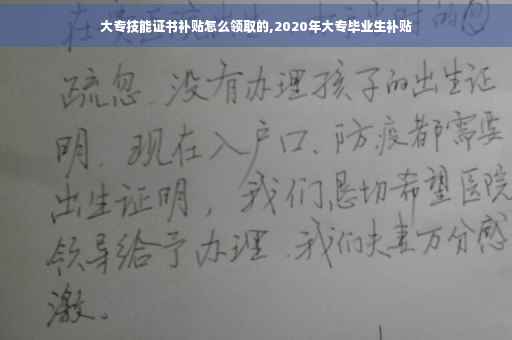 大专技能证书补贴怎么领取的,2020年大专毕业生补贴
疏忽.没有办理孩子的出生证
明.现在入户口、防疫都需要
出生证明，我们恳切希望医院
领导给予办理.我们夫妻万分感
激。